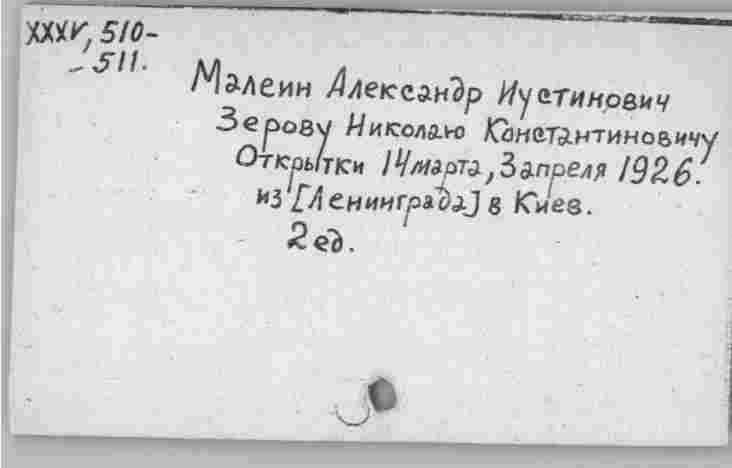 XXXV, 510-
- 511.
Малеин Александр Иустинович
Зерову Николаю Константиновичу
Открытки 14 марта, 3 апреля 1926.
из [Ленинграда] в Киев.
2 ед.